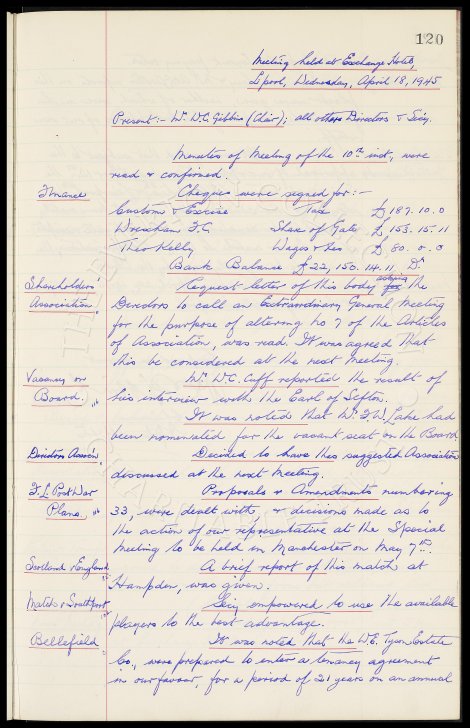 120
Meeting held at Exchange Hotel,
L'pool, Wednesday, April 18, 1945
Present:- Mr. W.C. Gibbins (Chair); all other Directors & Secy.
Minutes of Meeting of the 10th inst, were
read & confirmed.
Finance
Cheques were signed for:-
Customs & Excise Tax £187. 10. 0
Wrexham F.C. Share of Gate £153. 15. 11
Theo Kelly Wages &c £80. 0. 0
Bank Balance £22,150. 14. 11. Dr.
Shareholders' Association.
Request letter of this body asking the
Directors to call an Extraordinary General Meeting
for the purpose of altering no 7 of the Articles
of Association, was read. It was agreed that
this be considered at the next meeting.
Vacancy on Board.
Mr. W.C. Cuff reported the result of
his interview with the Earl of Sefton.
It was noted that Mr. F.W. Lake had
been nominated for the vacant seat on the Board
Directors Assocn.
Decided to have this suggested Association
discussed at the next meeting.
F.L. Post War Plans
Proposals & Amendments numbering
33, were dealt with, & decisions made as to
the action of our representative at the Special
Meeting to be held in Manchester on May 7th.
Scotland v England
A brief report of this match at
Hampden, was given.
Match v Southport
Secy empowered to use the available
players to the best advantage.
Bellefield
It was noted that the W.E. Tyson Estate
Co., were prepared to enter a tenancy agreement
in our favour, for a period of 21 years on an annual